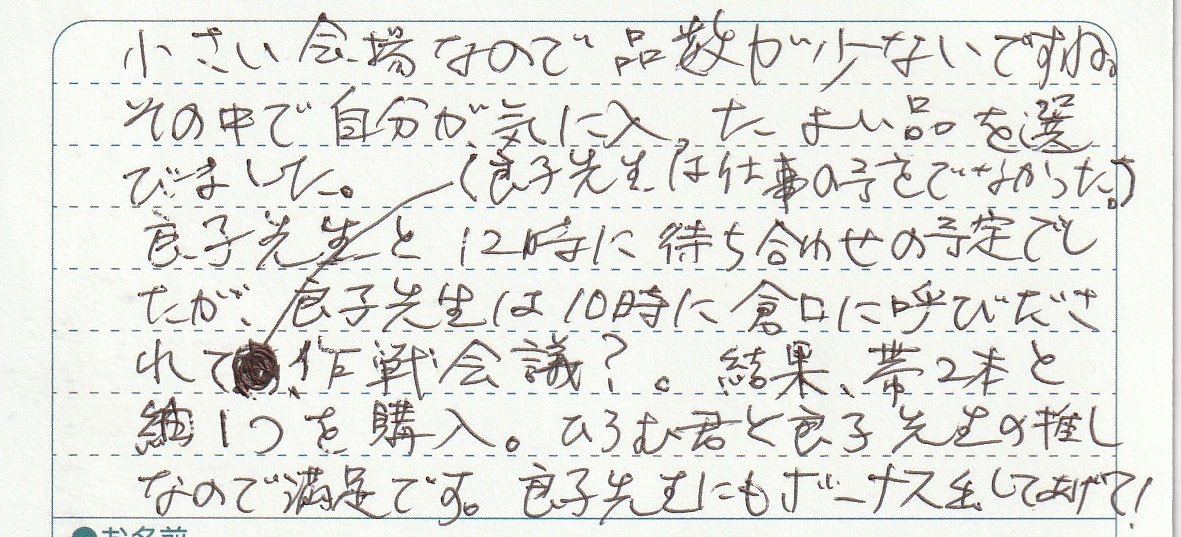 小さい会場なので品数が少ないですね。
その中で自分が、気に入ったよい品を選
びました。(良子先生は仕事の予定でなかった。)
良子先生と12時に待ち合わせの予定でし
たが、良子先生は10時に倉口に呼びださ
れて、作戦会議?。結果、帯2本と
紬1つを購入。ひろむ君と良子先生の推し
なので満足です。良子先生にもボーナス出してあげて!
●お名前